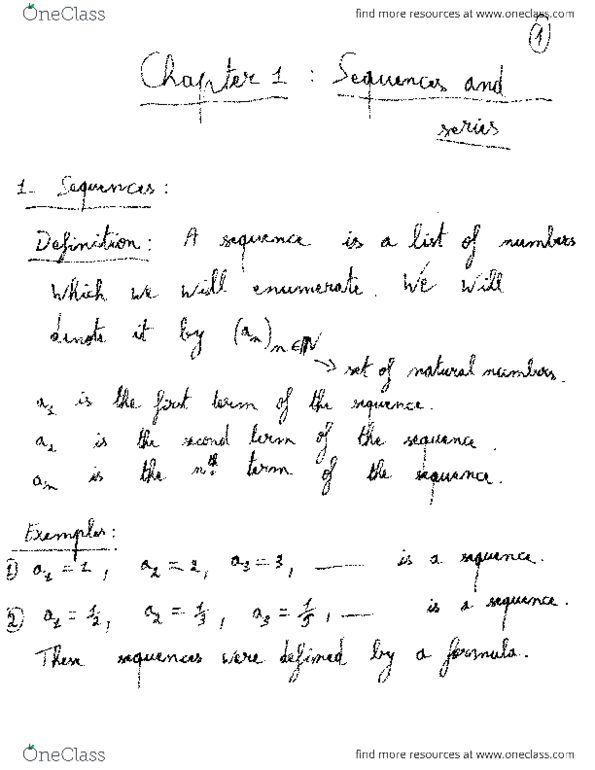 OneClass
find more resources at www.oneclass.com
1
Chapter 1 : Sequences and
series
1- Sequences:
Definition: A sequence is a list of numbers
which we will enumerate. We will
denote it by (aₙ)ₙ∈ℕ
→ set of natural numbers.
a₁ is the first term of the sequence.
a₂ is the second term of the sequence.
aₙ is the nᵗʰ term of the sequence.
Examples:
1) a₁ = 1, a₂ = 2, a₃ = 3, —— is a sequence.
2) a₁ = 1/2, a₂ = 1/3, a₃ = 1/5, —— is a sequence.
These sequences were defined by a formula.
OneClass
find more resources at www.oneclass.com